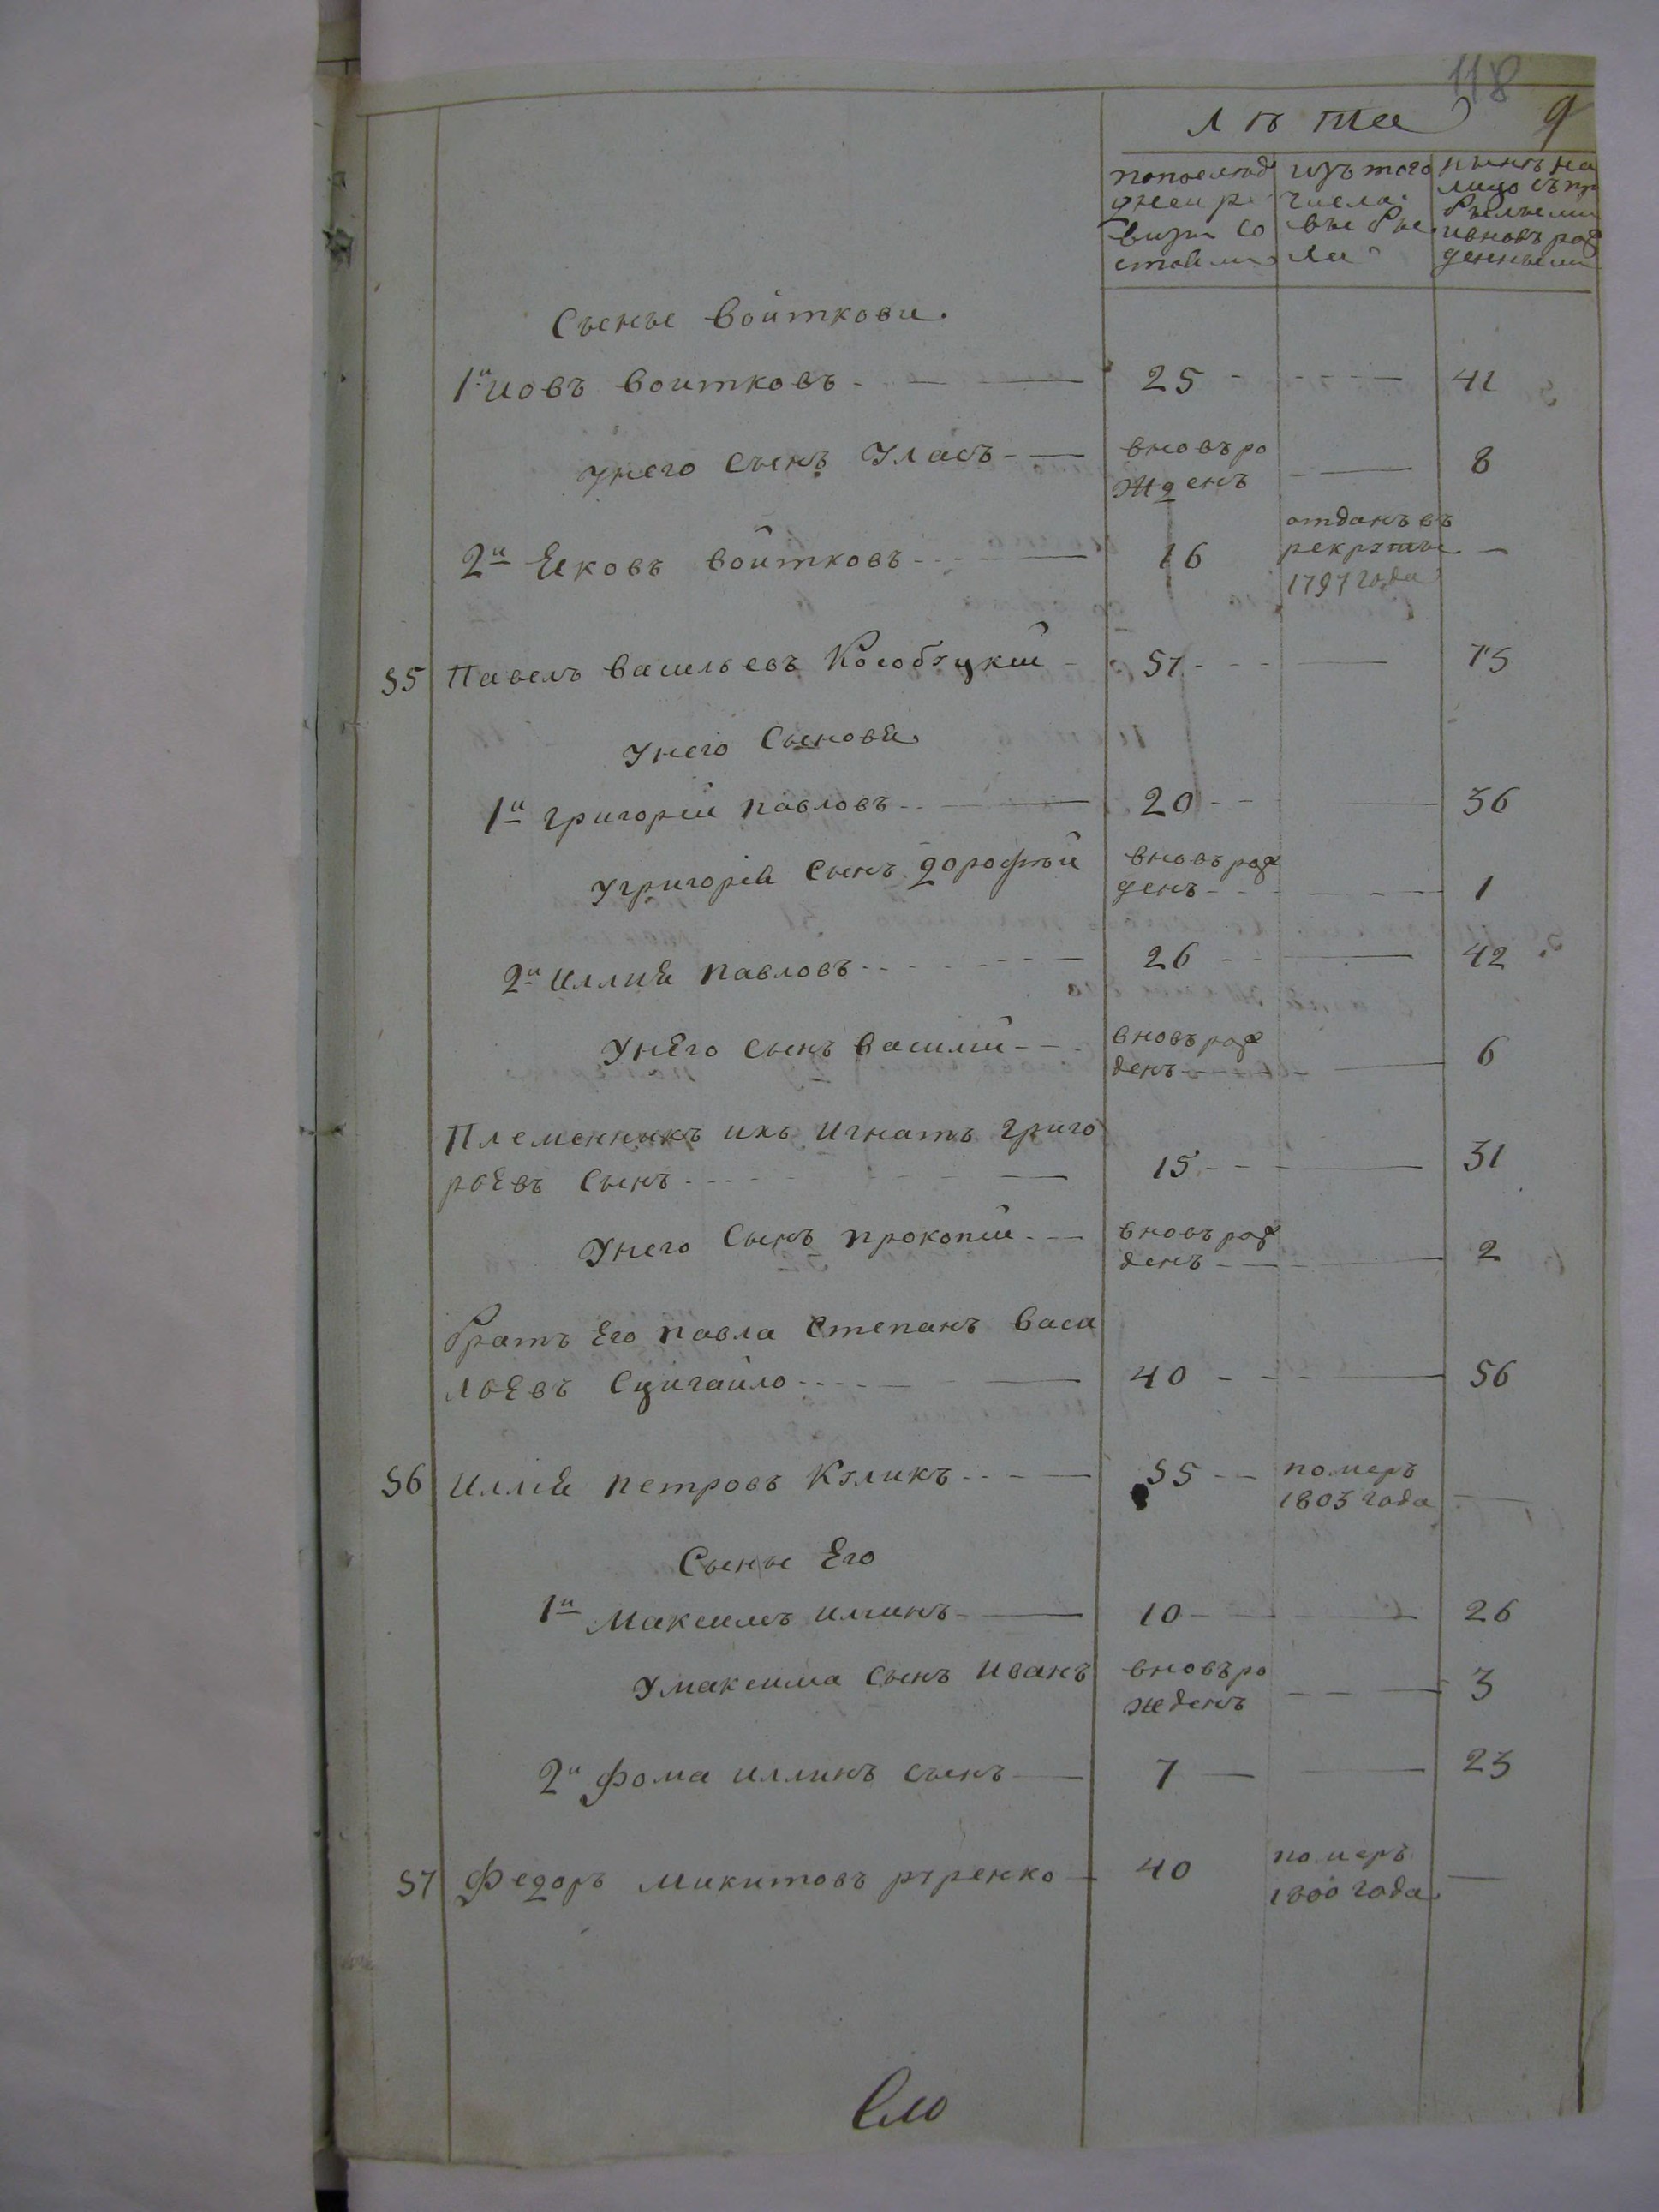 118
Лѣта 9
попослѣд изътого нынѣ на
ней ре числа лицо съпри
визи со выбы былыми
стояли ли ивновь рож
денными
Сыны войткови.
1й иовъ воитковъ 25 41
унего сынъ Уласъ вновь ро 8
жденъ
отданъ въ
2й Яковъ войтковъ 16 рекруты
1797 года
55 Павелъ васильевъ Кособуцкий 57 73
Унего Сыновя
1й григорей павловъ 20 36
Угригорея сынъ дорофѣй вновь рож
денъ 1
2й иллия павловъ 26 42
Унего сынъ василий вновь рож 6
денъ
Племенникъ ихъ игнатъ григо
рьевъ сынъ 15 31
Унего Сынъ прокопий вновь рож
денъ 2
братъ Его павла степанъ васи
льевъ Сцигайло 40 56
56 иллия петровъ Куликъ 55 померъ
1803 года
Сыны Его
1й максимъ илинъ 10 26
Умаксима сынъ иванъ вновь ро 3
жденъ
2й фома иллинъ сынъ 7 23
57 Федоръ микитовъ руренко 40 померъ
1800 года